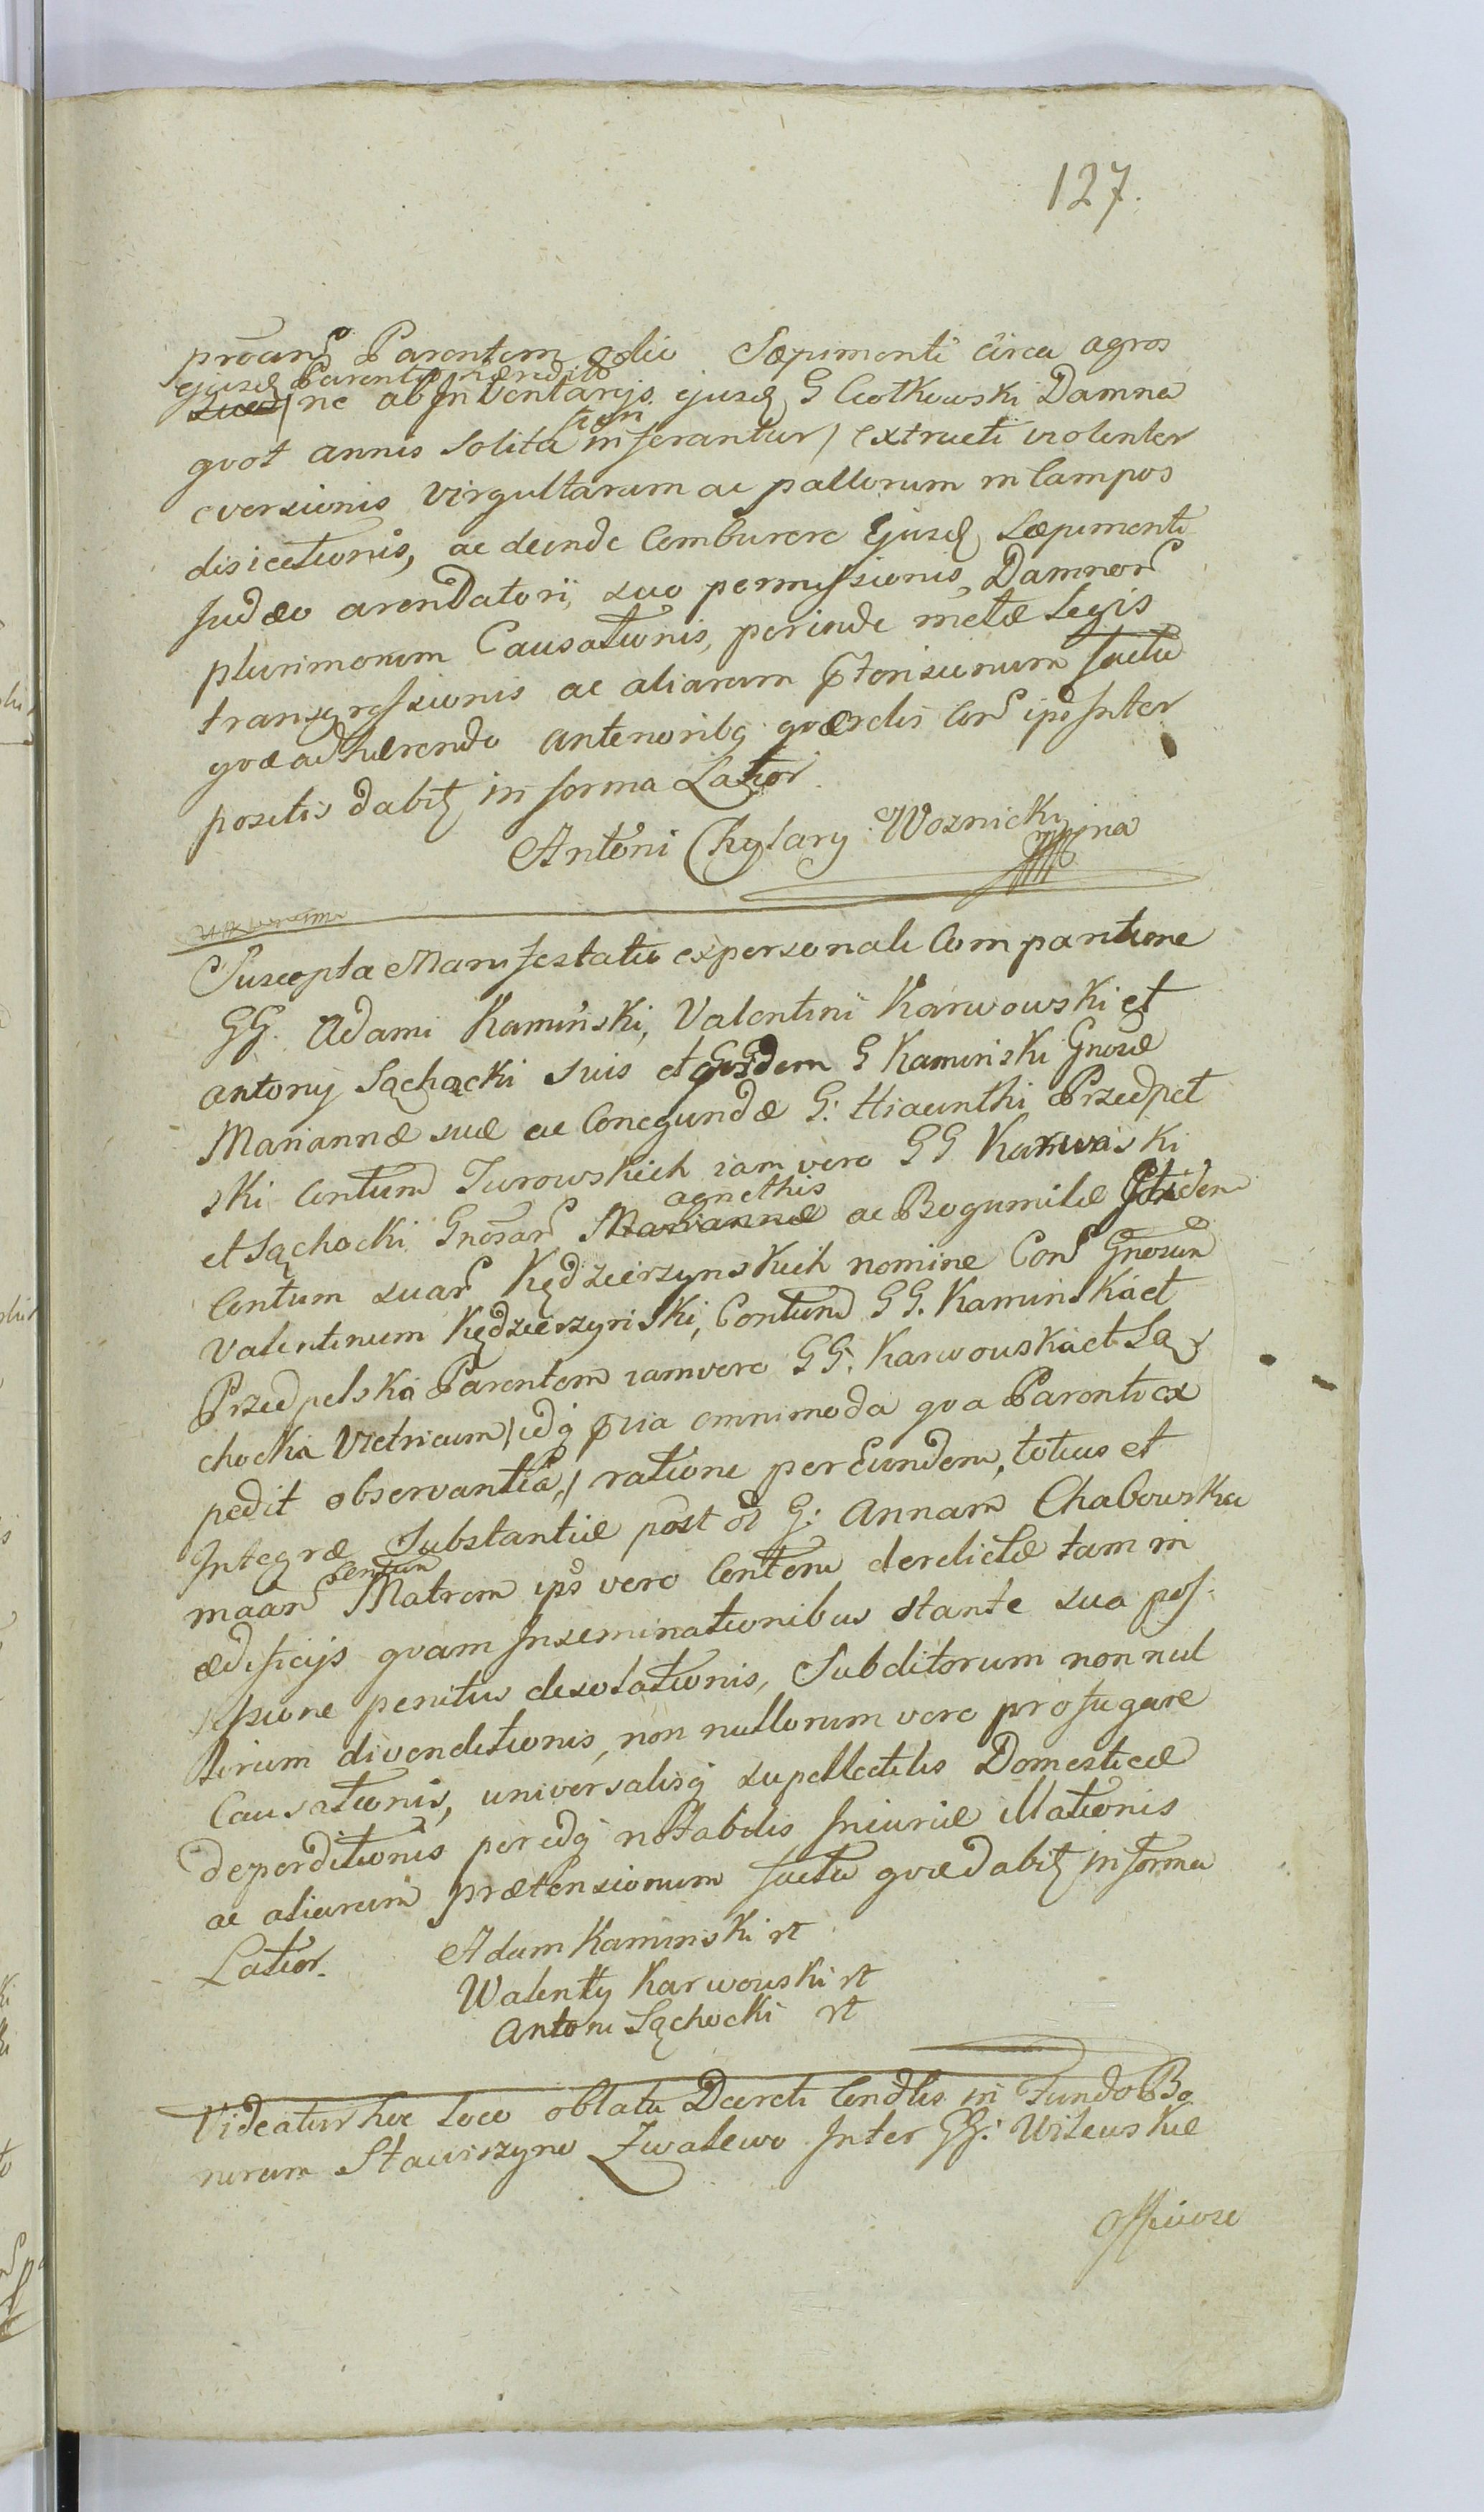 127.
procans Parentem odio Sæpimenti circa agros
ejusd Parentis hæredito
suos / ne ab Inventarijs ejusd G Ciotkowski Damna
quot annis Solita non inferantur / extructi violenter
eversionis virgultarum ac pallorum in Campos
disiectionis, ac deinde Comburere Ejusd Sæpimenti
Judæo arendatori, suo permissionis Damnor
plurimorum Causationis, perinde metæ Legis
transgressionis ac aliarum ptensionum factu
qvæ adhærendo anterioribq qværelis Con ips Inter
positis dabit in forma Latior.
Antoni Woznicki mpina
Suscepta Manifestatio expersonali Comparitione
GG. Adami Kaminski, Valentini Karwowski et
Antonij Sąchocki suis et Ejusdem G Kaminski Gnosæ
Mariannæ suæ ac Conegundæ G: Hiacinthi Przedpeł
ski Contum Turowskich iam vero GG Karwoski
et Sąchocki Gnosar Mariannæ agnethis ac Bogumilæ Itidem
Contum suar Kędzierzynskich nomine Con Gnosum
Valentinum Kędzierzynski, Contum GG. Kaminska et
Przedpelska Parentem iamvero GG. Karwouska et Są
chocka Vitricum / idq pvia omnimoda qva Parenti ex
pedit observantia, / ratione per Eundem, totius et
Integræ Substantiæ post ol G: Annam Chabowska
maar Contum Matrem ips vero Contem derelictæ tam in
ædificijs qvam Inseminationibus stante sua pos-
sessione penitus desolationis, Subditorum nonnul
lorum divenditionis, non nullorum vero profugare
Causationis, universalisq supellectilis Domesticæ
deperditionis per idq notabilis Iniuriæ illationis
ac aliarum prætensionum factu qvæ dabit in forma
Latior. Adam Kaminski rt
Walenty Karwouski rt
Antoni Sąchocki rt
Videatur hic loco oblata Dcreti Condlis in Fundo Bo
norum Stawiszyno Zwalewo Inter GG: Wilewskie
Officiose